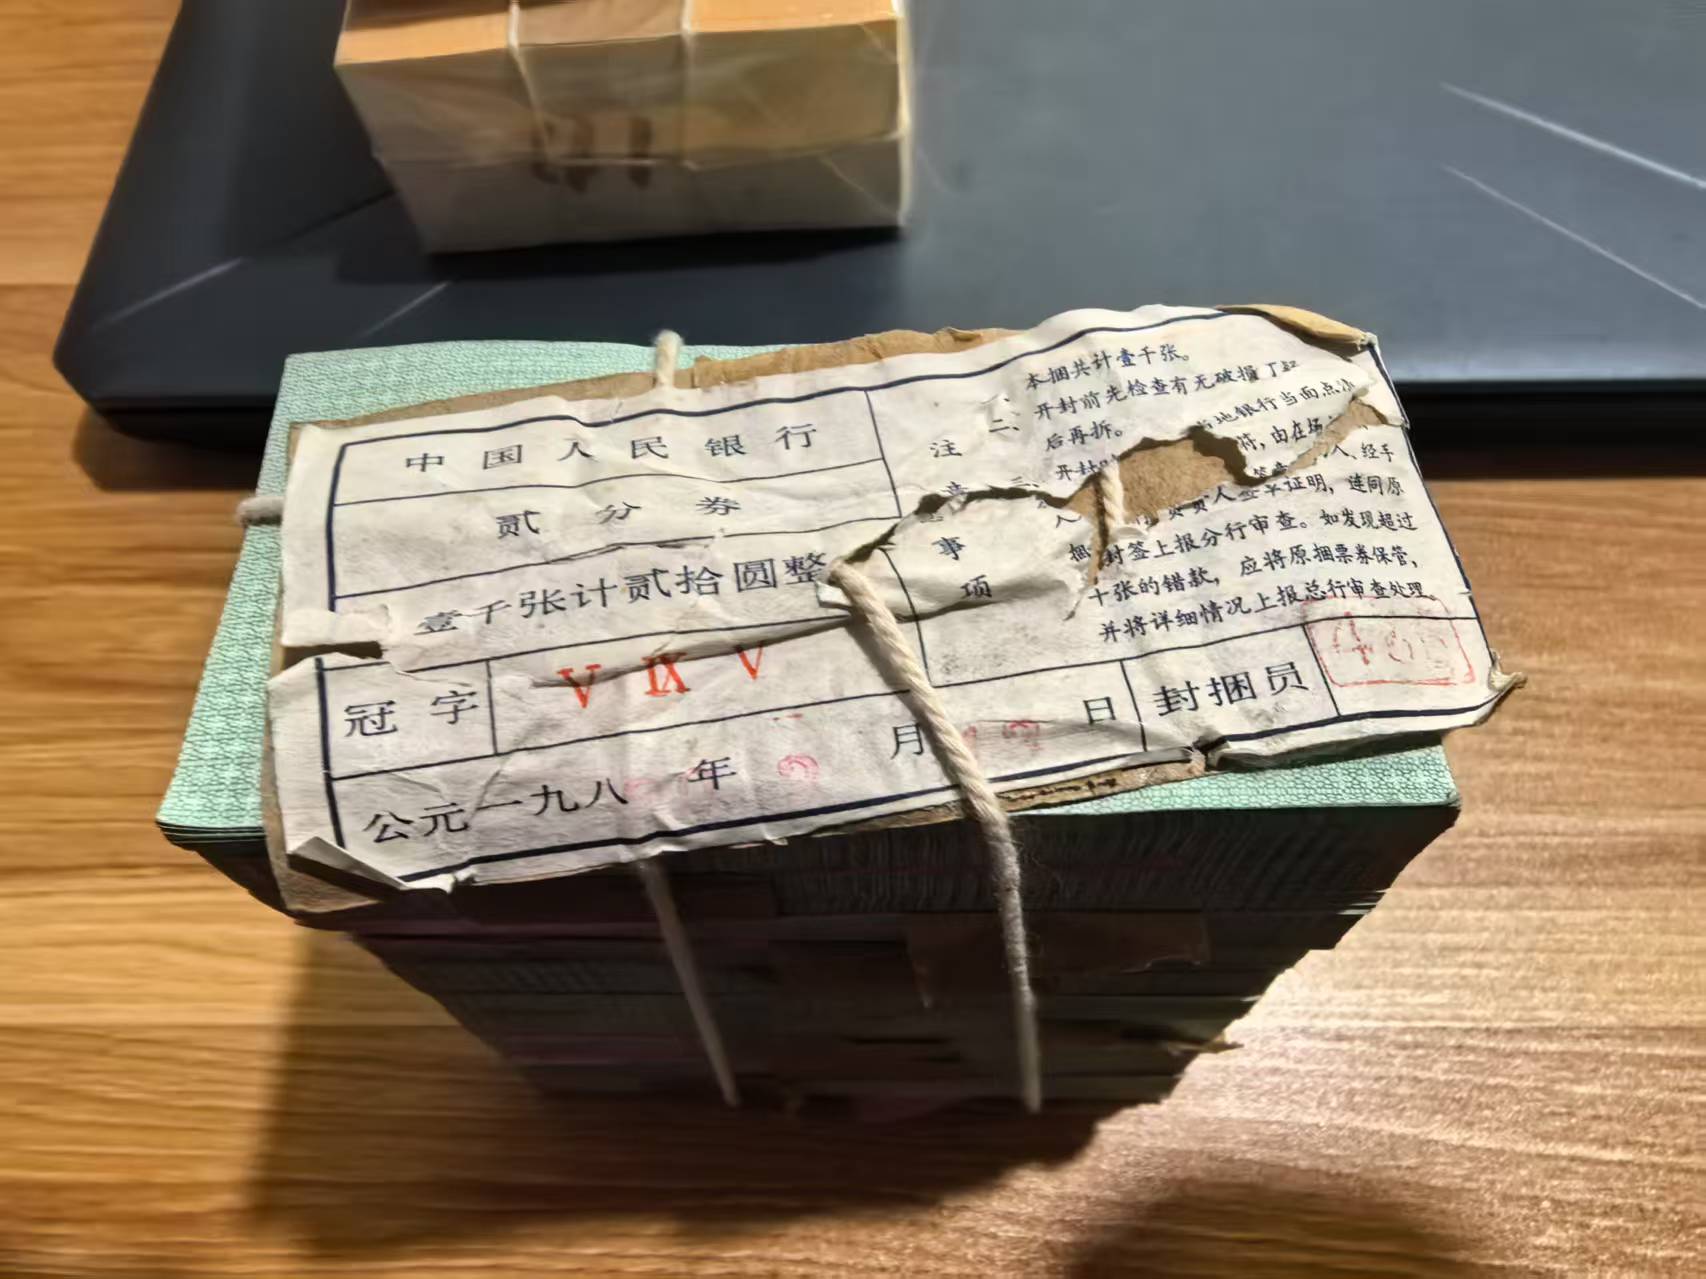 中国人民银行
贰分券
壹千张计贰拾圆整
冠字 V IX V
公元一九八 年 月 日
封捆员
注
事
项
本捆共计壹千张。
二、开封前先检查有无破损
后再拆。
开封 银行当面点
符,由在场 人、经手
人 证明,连同原
捆封签上报分行审查。如发现超过
十张的错款,应将原捆票券保管,
并将详细情况上报总行审查处理。